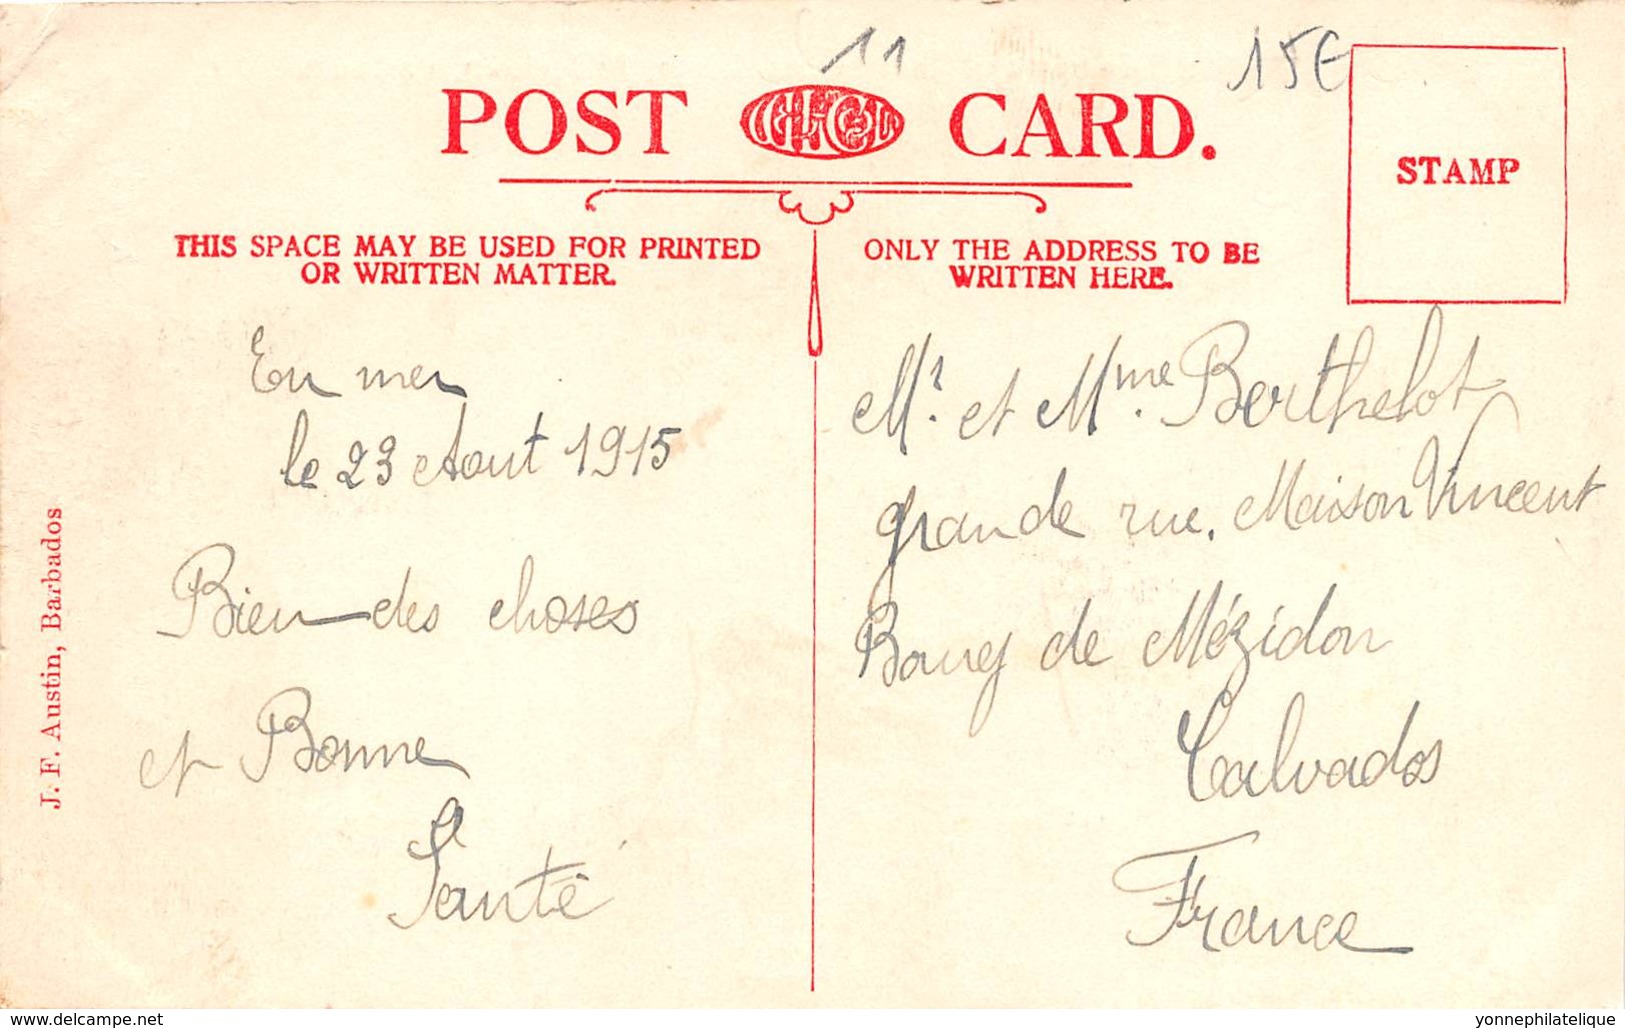 11
15€
POST CARD.
STAMP
THIS SPACE MAY BE USED FOR PRINTED
OR WRITTEN MATTER.
ONLY THE ADDRESS TO BE
WRITTEN HERE.
En mer
le 23 Aout 1915
Bien des choses
et Bonne
Santé
Mr. et Mme Berthelot
grande rue. Maison Vincent
Bourg de Mézidon
Calvados
France
J. F. Austin, Barbados
www.delcampe.net
yonnephilatelique